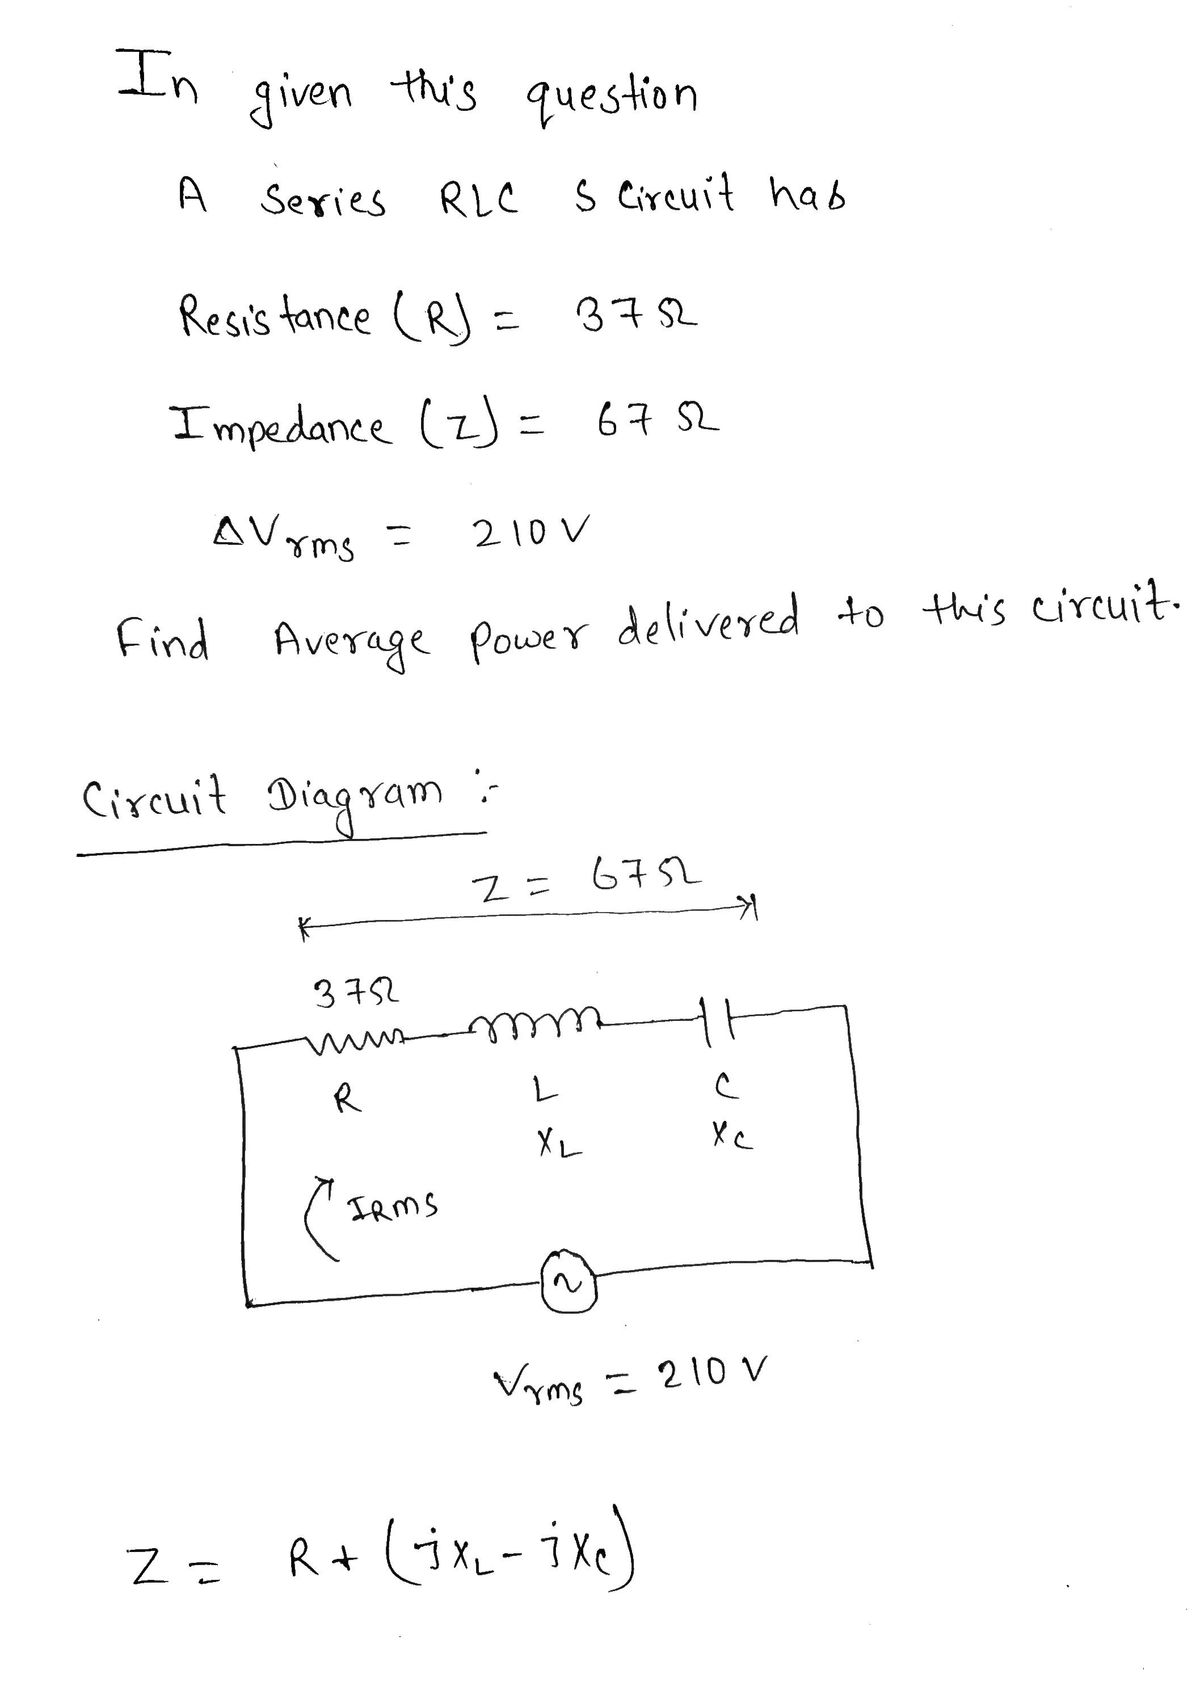 In given this question
A Series RLC S Circuit has
Resistance (R) = 37 Ω
Impedance (Z) = 67 Ω
ΔVrms = 210 V
Find Average Power delivered to this circuit.
Circuit Diagram :-
Z = 67Ω
37Ω
R L C
XL XC
IRMS
Vrms = 210 V
Z = R + (jXL - jXC)